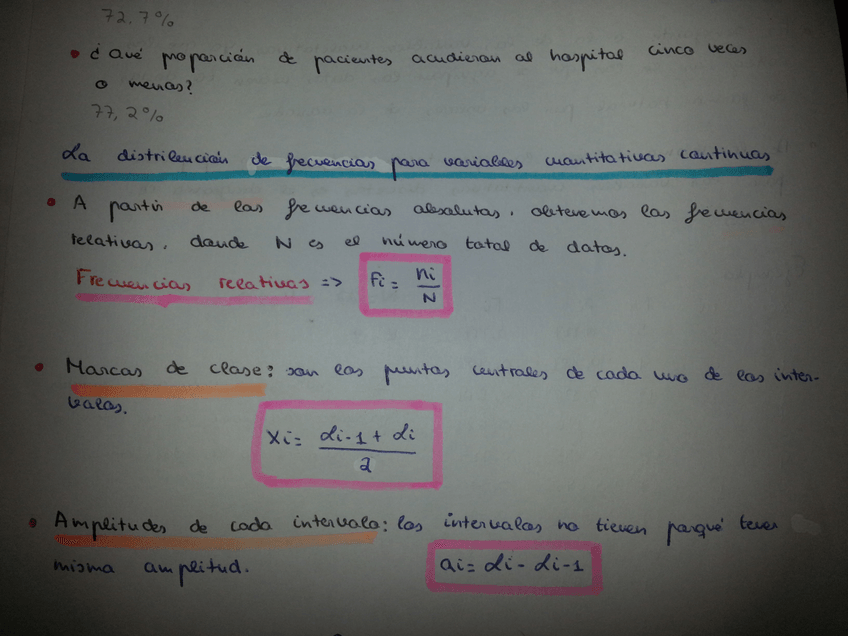 72.7%
• ¿Qué proporción de pacientes acudieron al hospital cinco veces
o menos?
77,2%
La distribución de frecuencias para variables cuantitativas continuas
• A partir de las frecuencias absolutas, obtenemos las frecuencias
relativas, donde N es el número total de datos.
Frecuencias relativas => Fi = ni/N
• Marcas de clase: son los puntos centrales de cada uno de los inter-
valos.
Xi = (Li-1 + Li)/2
• Amplitudes de cada intervalo: los intervalos no tienen porqué tener
misma amplitud. ai = Li - Li-1